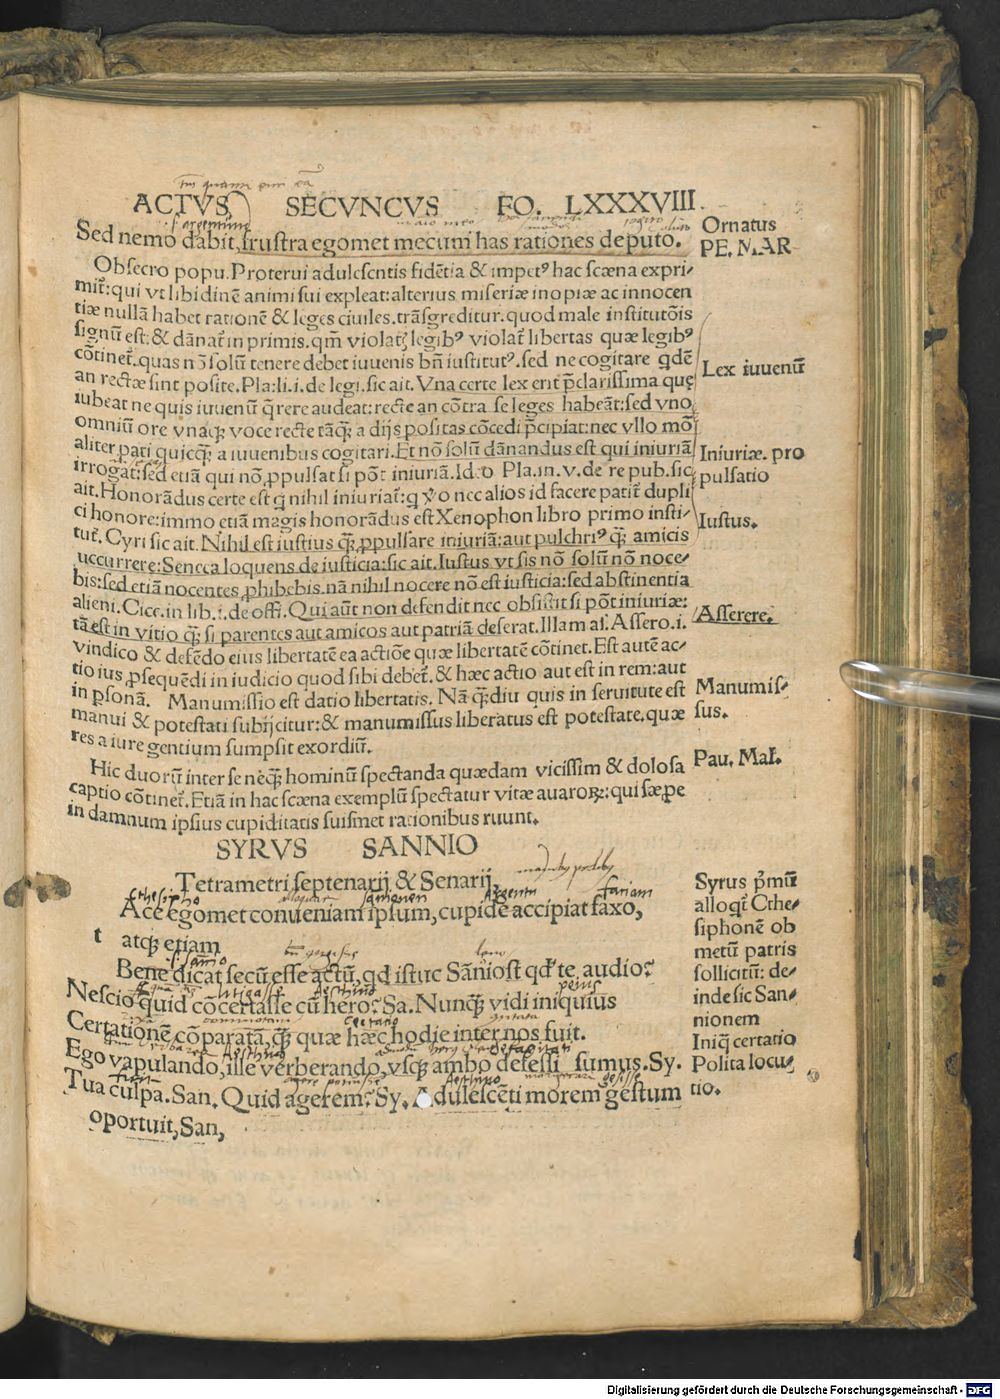 ACTVS SECVNCVS FO. LXXXVIII.
Sed nemo dabit, frustra egomet mecum has rationes deputo.
Ornatus
PE. MAR
Obsecro popu. Proterui adulescentis fidētia & impetꝰ hac scæna expri⸗
mit̄: qui vt libidinē animi sui expleat: alterius miseriæ inopiæ ac innocen
tiæ nullā habet rationē & leges ciuiles. trāsgreditur. quod male institutōis
signū est: & dānat̄ in primis. qm̄ violatꝭ legibꝰ violat̄ libertas quæ legibꝰ
cōtinet̄. quas nō solū tenere debet iuuenis bn̄ iustitutꝰ. sed ne cogitare qdē
an rectæ sint posite. Pla: li. i. de legi. sic ait. Vna certe lex erit p̄clarissima quę
iubeat ne quis iuuenū q̄rere audeat: recte an cōtra se leges habeāt: sed vno
omniū ore vnaqꝫ voce recte tāqꝫ a dijs positas cōcedi p̄cipiat: nec vllo mō
aliter pati quicqꝫ a iuuenibus cogitari. Et nō solū dānandus est qui iniuriā
irrogat: sed etiā qui nō ꝓpulsat si pōt iniuriā. Ideo Pla. in. v. de re pub. sic
ait. Honorādus certe est q nihil iniuriat̄: q v̊o nec alios id facere patit̄ dupli
ci honore: immo etiā magis honorādus est Xenophon libro primo insti⸗
tut̄. Cyri sic ait. Nihil est iustius qꝫ ꝓpulsare iniuriā: aut pulchriꝰ qꝫ amicis
uccurrere: Seneca loquens de iusticia: sic ait. Iustus vt sis nō solū nō noce⸗
bis: sed etiā nocentes ꝓhibebis. nā nihil nocere nō est iusticia: sed abstinentia
alieni. Cice. in lib. i. de offi. Qui aūt non defendit nec obsistit si pōt iniuriæ:
tā est in vitio qꝫ si parentes aut amicos aut patriā deserat. Illam al. Assero. i.
vindico & defēdo eius libertatē ea actiōe quæ libertatē cōtinet. Est autē ac⸗
tio ius ꝓsequēdi in iudicio quod sibi debet̄. & hæc actio aut est in rem: aut
in ꝑsonā. Manumissio est datio libertatis. Nā qꝫdiu quis in seruitute est
manui & potestati subijcitur: & manumissus liberatus est potestate. quæ
res a iure gentium sumpsit exordiū.
Lex iuuenū
Iniuriæ. pro
pulsatio
Iustus.
Asserere.
Manumis⸗
sus.
Hic duorū inter se neqꝫ hominū spectanda quædam vicissim & dolosa
captio cōtinet̄. Etiā in hac scæna exemplū spectatur vitæ auaroꝝ: qui sæpe
in damnum ipsius cupiditatis suismet rationibus ruunt.
Pau. Mal.
SYRVS SANNIO
Tetrametri septenarij & Senarij
Ace egomet conueniam ipsum, cupide accipiat faxo,
t atqꝫ etiam
Bene dicat secū esse actū, qd istuc Sāniost qd te audio?
Nescio quid cōcertasse cū hero? Sa. Nunqꝫ vidi iniquius
Certationē cōparatā, qꝫ quæ hæc hodie inter nos fuit.
Ego vapulando, ille verberando, vsqꝫ ambo defessi sumus. Sy.
Tua culpa. San. Quid agerem? Sy. Adulescēti morem gestum
oportuit, San,
Syrus p̄mū
alloqt̄ Cthe⸗
siphonē ob
metū patris
sollicitū: de⸗
inde sic San⸗
nionem
Iniq certatio
Polita locu⸗
tio.
Digitalisierung gefördert durch die Deutsche Forschungsgemeinschaft - DFG